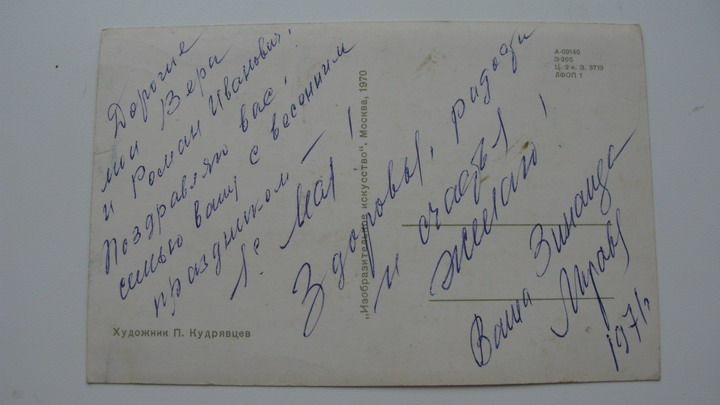 Дорогие
мои Вера
и Роман Иванович!
Поздравляю вас!
семью вашу с весенним
праздником –
1е Мая!
Здоровья, радости
и счастья
желаю!
Ваша Зинаида
1971г.
Художник П. Кудрявцев
„Изобразительное искусство". Москва, 1970
А-09140
Э-205
Ц. 2 к. З. 3719
ЛФОП 1